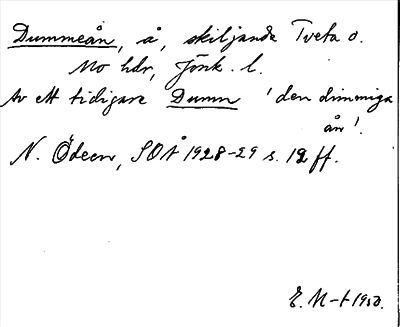 Dummeån, å, skiljande Tveta o.
Mo hdr, Jönk. l.
Av ett tidigare Dumn 'den dimmiga
ån'.
N. Ödeen, SOÅ 1928-29 s. 12 ff.
E. M-t 1950.